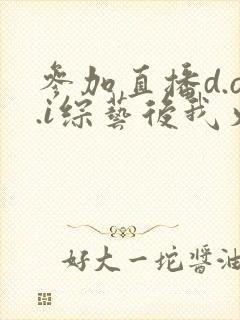 參加直播d.a
.i綜藝後我
好大一坨醬油